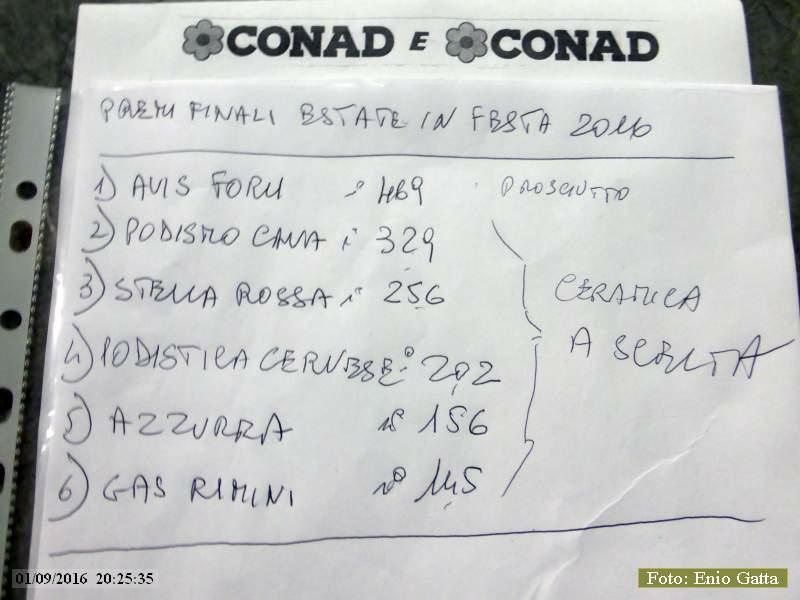 CONAD E CONAD
PREMI FINALI ESTATE IN FESTA 2016
1) AVIS FORLI n° 469 PROSCIUTTO
2) PODISMO CAVA n° 329
3) STELLA ROSSA n° 256
CERAMICA
A SCELTA
4) PODISTICA CERVESE n° 202
5) AZZURRA n° 156
6) GAS RIMINI n° 145
01/09/2016 20:25:35
Foto: Enio Gatta